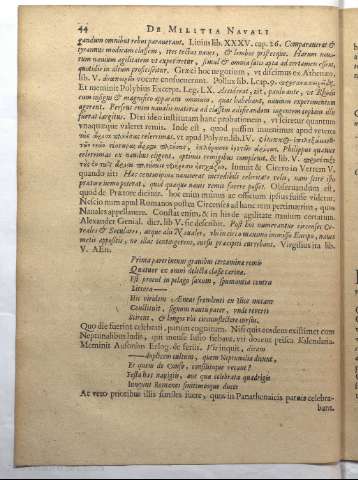 44 DE MILITIA NAVALI
gandum omnibus rebus paraverant. Livius lib. XXXV. cap. 26. Comparaverat &
tyrannus modicam classem, tres tectas naves, & lembos pristesque. Harum nova-
rum navium agilitatem ut experiretur, simul & omnia satis apta ad certamen essent,
quotidie in altum Græci hoc negotium, ut discimus ex Athenæo,
lib. V. vocare consueverunt. Pollux lib. I. cap. 9.
Et meminit Polybius Excerpt. Leg. LX. Acciderat, ait, paulo ante, ut Rhodii
cum magno & magnifico apparatu omnium, quas habebant, navium experimentum
agerent. Perseus enim navalis materiæ ad classem ædificandam ingentem copiam illis
fuerat largitus. Dixi ideo institutam hanc probationem, ut sciretur quantum
unaquæque valeret remis. Inde est, quod passim invenimus apud veteres
ut apud Polyb. lib. IV.
Philippus quinque
celerrimas ex navibus eligens, optimis remigibus complevit, & lib. V.
Innuit & Cicero in Verrem V.
quando ait: Hac cum
posse. Observandum est,
quod de Prætore dicitur, hoc enim munus ac officium ipsius fuisse videtur.
Nescio num apud Romanos postea Circensia ad hanc rem pertinuerint, quos
Navales appellarunt. Constat enim, & in his de agilitate navium certatum.
Alexander Genial. dier. lib. V. sic describit. Post hos numerantur circenses Ce-
reales & Seculares, atque alii Navales, ubi in circo manu immisso Euripo, naves
metis appositis, ne illas contingerent, cursu præcipiti currebant. Virgilius ita lib.
V. Æn.
Prima pares ineunt gravibus certamina remis
Quatuor ex omni delecta classe carina.
Est procul in pelago saxum, spumantia contra
Littora——
Hic viridem Æneas frondenti ex ilice metam
Constituit, signum nautis pater, unde reverti
Scirent, & longos ubi circumflectere cursus.
Quo die fuerint celebrati, parum cognitum. Nisi quis eosdem existimet cum
Neptunalibus ludis, qui mense Julio fiebant, uti docent prisca Kalendaria.
Meminit Ausonius Eclog. de feriis. Vis inquit, dicam
——duplicem cultum, quem Neptunalia dicunt,
Et quem de Conso, consiliisque vocant?
Festa hæc navigiis, aut quæ celebrata quadrigis
Jungunt Romanos finitimosque duces
At vero prioribus illis similes fuere, quos in Panathenaicis celebra-
bant.